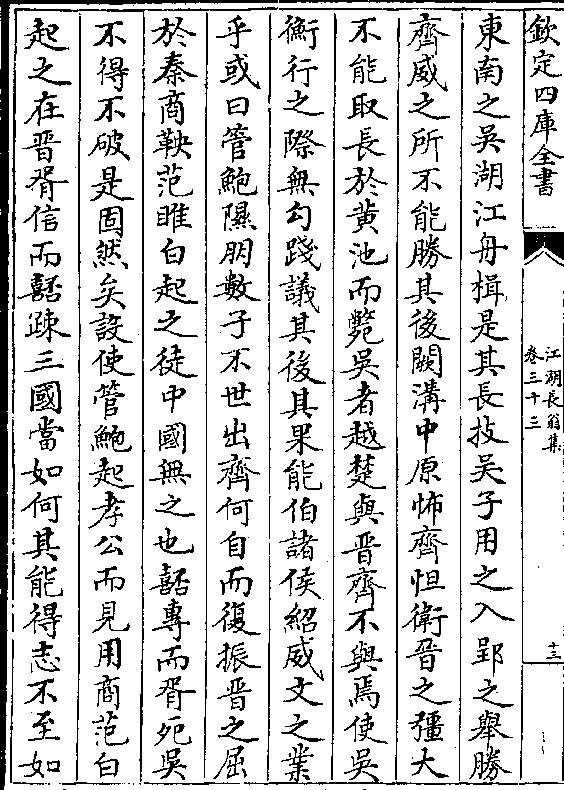 欽定四庫全書
江湖長翁集
卷三十三
十三
東南之吳湖江舟楫是其長技吳子用之入郢之舉勝
齊威之所不能勝其後闕溝中原怖齊怛衛晉之彊大
不能取長於黄池而斃吳者越楚與晉齊不與焉使吳
衡行之際無勾踐議其後其果能伯諸侯紹威文之業
乎或曰管鮑隰朋數子不世出齊何自而復振晉之屈
於秦商鞅范睢白起之徒中國無之也嚭專而胥死吳
不得不破是固然矣設使管鮑起孝公而見用商范白
起之在晉胥信而嚭疎三國當如何其能得志不至如